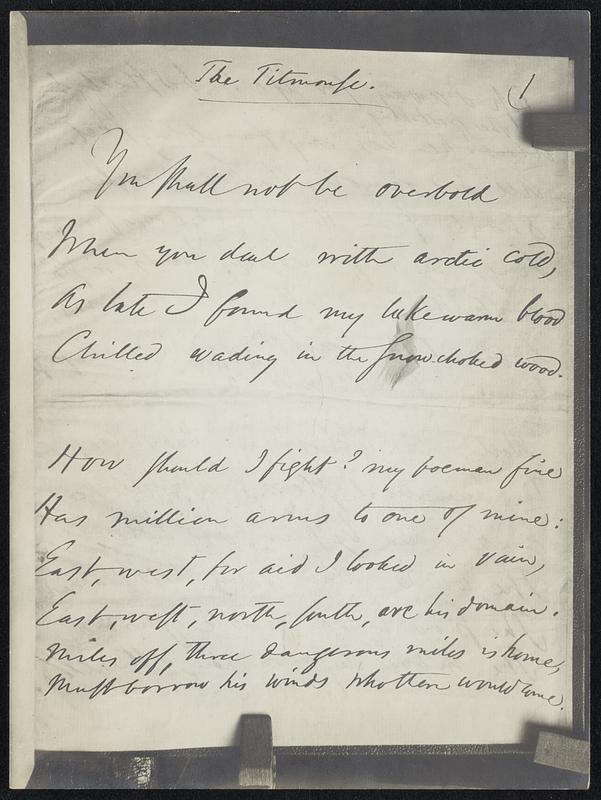 The Titmouse.
1
You shall not be overbold
When you deal with arctic cold,
As late I found my lukewarm blood
Chilled wading in the snow-choked wood.
How should I fight? my foeman fine
Has million arms to one of mine:
East, west, for aid I looked in vain,
East, west, north, south, are his domain.
Miles off, three dangerous miles is home,
Must borrow his winds who there would come.